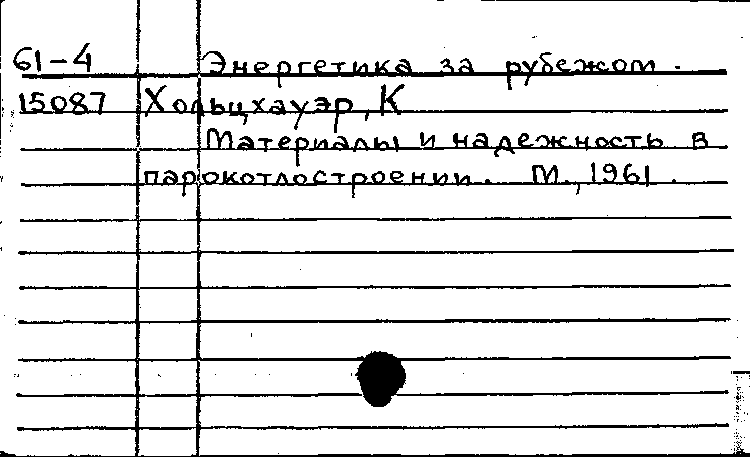 61-4 Энергетика за рубежом.
15087 Хольцхауэр, К
Материалы и надежность в
парокотлостроении. М., 1961.